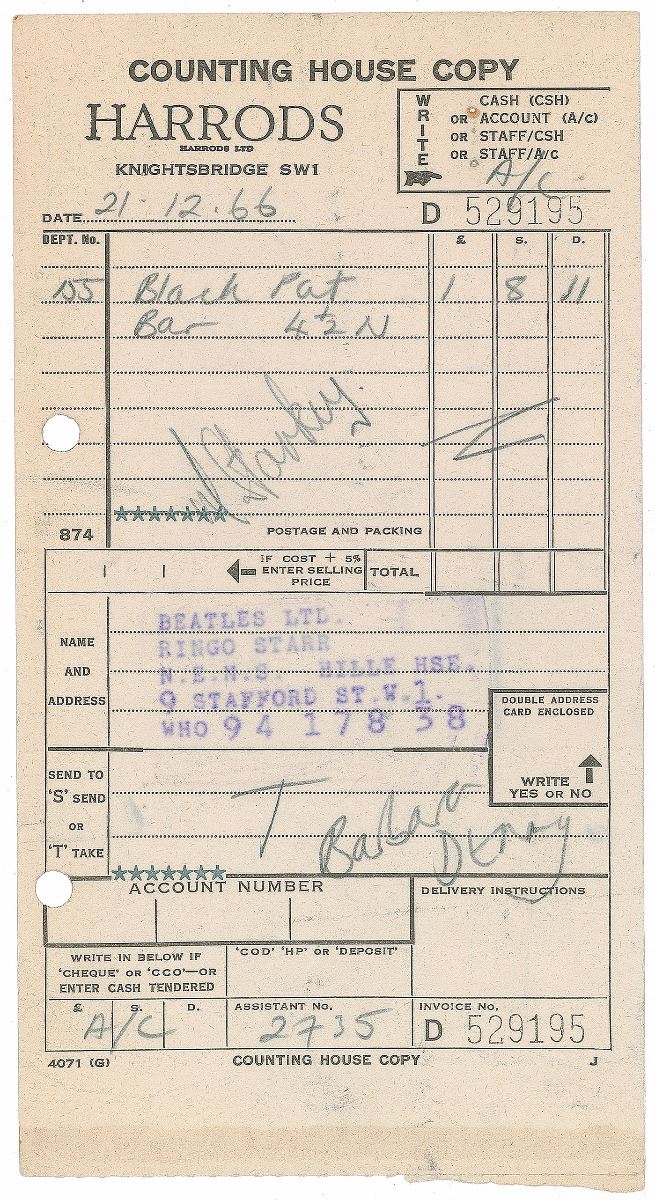 COUNTING HOUSE COPY
HARRODS
HARRODS LTD
KNIGHTSBRIDGE SW1
WRITE
CASH (CSH)
OR ACCOUNT (A/C)
OR STAFF/CSH
OR STAFF/A/C
A/C
DATE 21 · 12 . 66
D 529195
DEPT. No. £ S. D.
155 Black Pat 1 8 11
Bar 4½ N
Starkey.
★★★★★★★
874 POSTAGE AND PACKING
IF COST + 5%
ENTER SELLING
PRICE
TOTAL
NAME
AND
ADDRESS
BEATLES LTD.
RINGO STARR
N.E.N.S. HILLE HSE.
9 STAFFORD ST.W.1.
WHO 94 178 38
DOUBLE ADDRESS
CARD ENCLOSED
WRITE
YES OR NO
SEND TO
'S' SEND
OR
'T' TAKE
T
Barbara
★★★★★★★
ACCOUNT NUMBER
DELIVERY INSTRUCTIONS
WRITE IN BELOW IF
'CHEQUE' OR 'CCO'—OR
ENTER CASH TENDERED
'COD' 'HP' OR 'DEPOSIT'
£ S. D.
A/C
ASSISTANT No.
2735
INVOICE No.
D 529195
4071 (G) COUNTING HOUSE COPY J